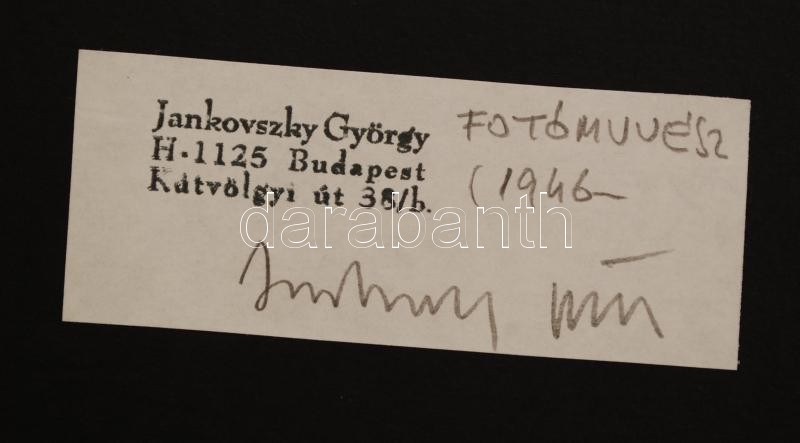 Jankovszky György
H-1125 Budapest
Kútvölgyi út 38/b.
FOTÓMUVÉSZ
(1946-
darabanth